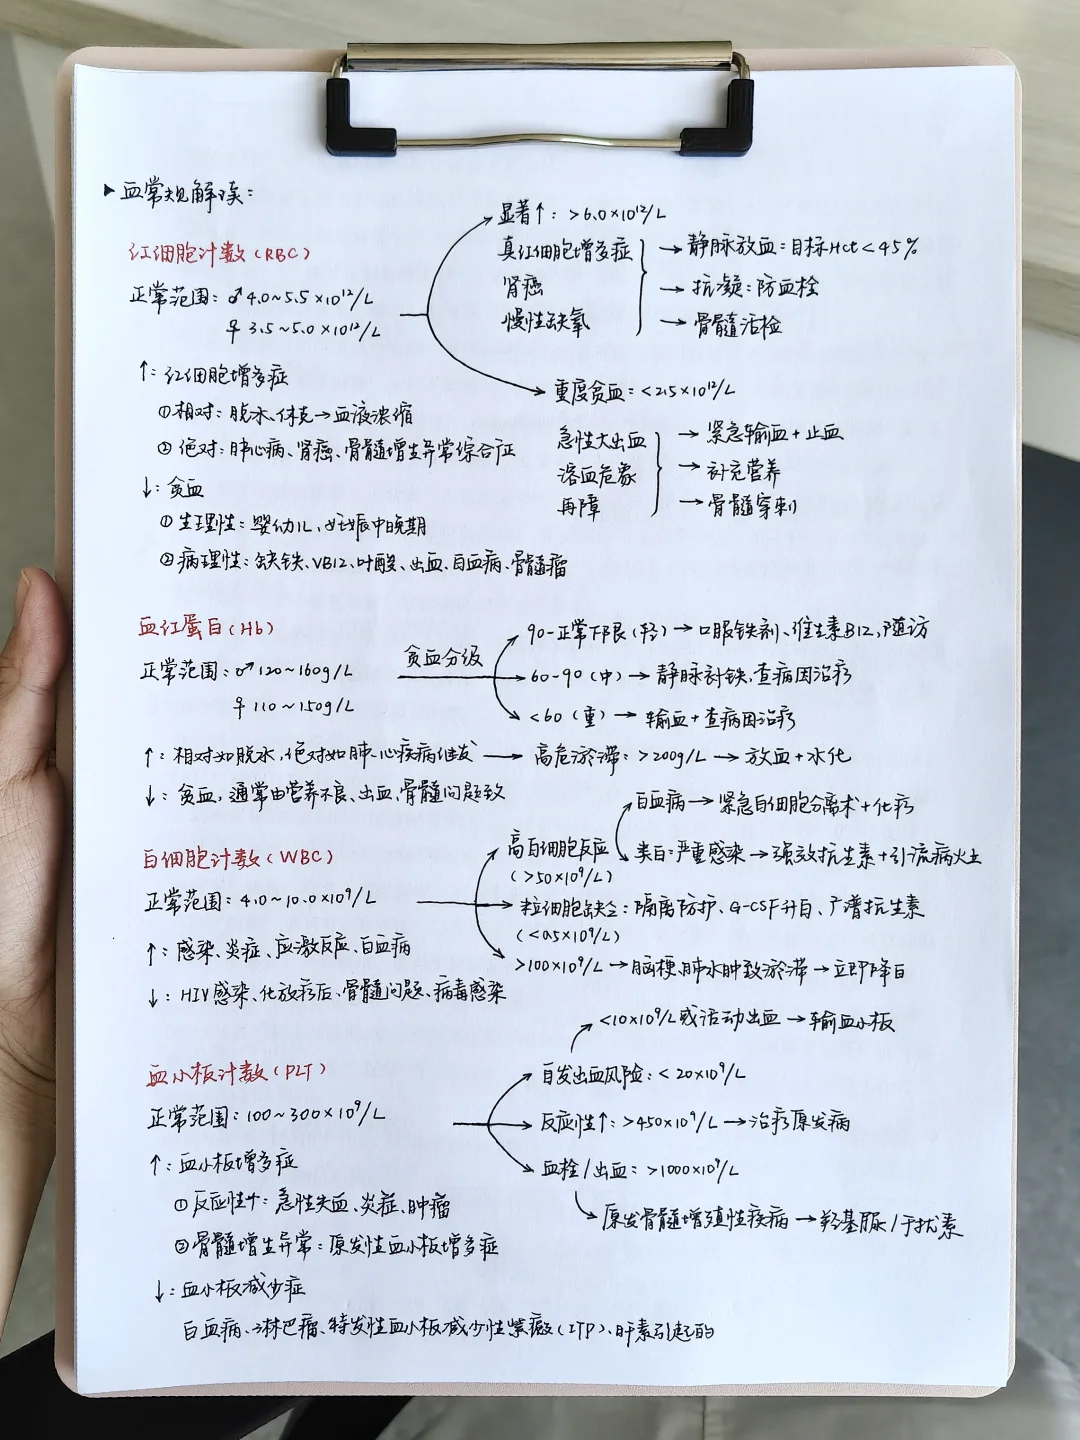 ▶血常规解读:
红细胞计数(RBC)
正常范围:♂4.0~5.5×10¹²/L
♀3.5~5.0×10¹²/L
显著↑:>6.0×10¹²/L
真红细胞增多症
肾癌
慢性缺氧
→静脉放血:目标Hct<45%
→抗凝:防血栓
→骨髓活检
↑:红细胞增多症
①相对:脱水、休克→血液浓缩
②绝对:肺心病、肾癌、骨髓增生异常综合征
重度贫血:<2.5×10¹²/L
急性大出血
溶血危象
再障
→紧急输血+止血
→补充营养
→骨髓穿刺
↓:贫血
①生理性:婴幼儿、妊娠中晚期
②病理性:缺铁、VB12、叶酸、出血、白血病、骨髓瘤
血红蛋白(Hb)
正常范围:♂120~160g/L
♀110~150g/L
贫血分级
90-正常下限(轻)→口服铁剂、维生素B12,随访
60-90(中)→静脉补铁,查病因治疗
<60(重)→输血+查病因治疗
↑:相对如脱水,绝对如肺、心疾病继发→高危淤滞:>200g/L→放血+水化
↓:贫血,通常由营养不良、出血,骨髓问题致
白细胞计数(WBC)
正常范围:4.0~10.0×10⁹/L
高白细胞反应
(>50×10⁹/L)
白血病→紧急白细胞分离术+化疗
类白:严重感染→强效抗生素+引流病灶
粒细胞缺乏:隔离防护、G-CSF升白、广谱抗生素
(<0.5×10⁹/L)
>100×10⁹/L→脑梗、肺水肿致淤滞→立即降白
↑:感染、炎症、应激反应、白血病
↓:HIV感染、化放疗后、骨髓问题、病毒感染
血小板计数(PLT)
正常范围:100~300×10⁹/L
<10×10⁹/L或活动出血→输血小板
自发出血风险:<20×10⁹/L
反应性↑:>450×10⁹/L→治疗原发病
血栓/出血:>1000×10⁹/L
原发骨髓增殖性疾病→羟基脲/干扰素
↑:血小板增多症
①反应性↑:急性失血、炎症、肿瘤
②骨髓增生异常:原发性血小板增多症
↓:血小板减少症
白血病、淋巴瘤、特发性血小板减少性紫癜(ITP)、肝素引起的